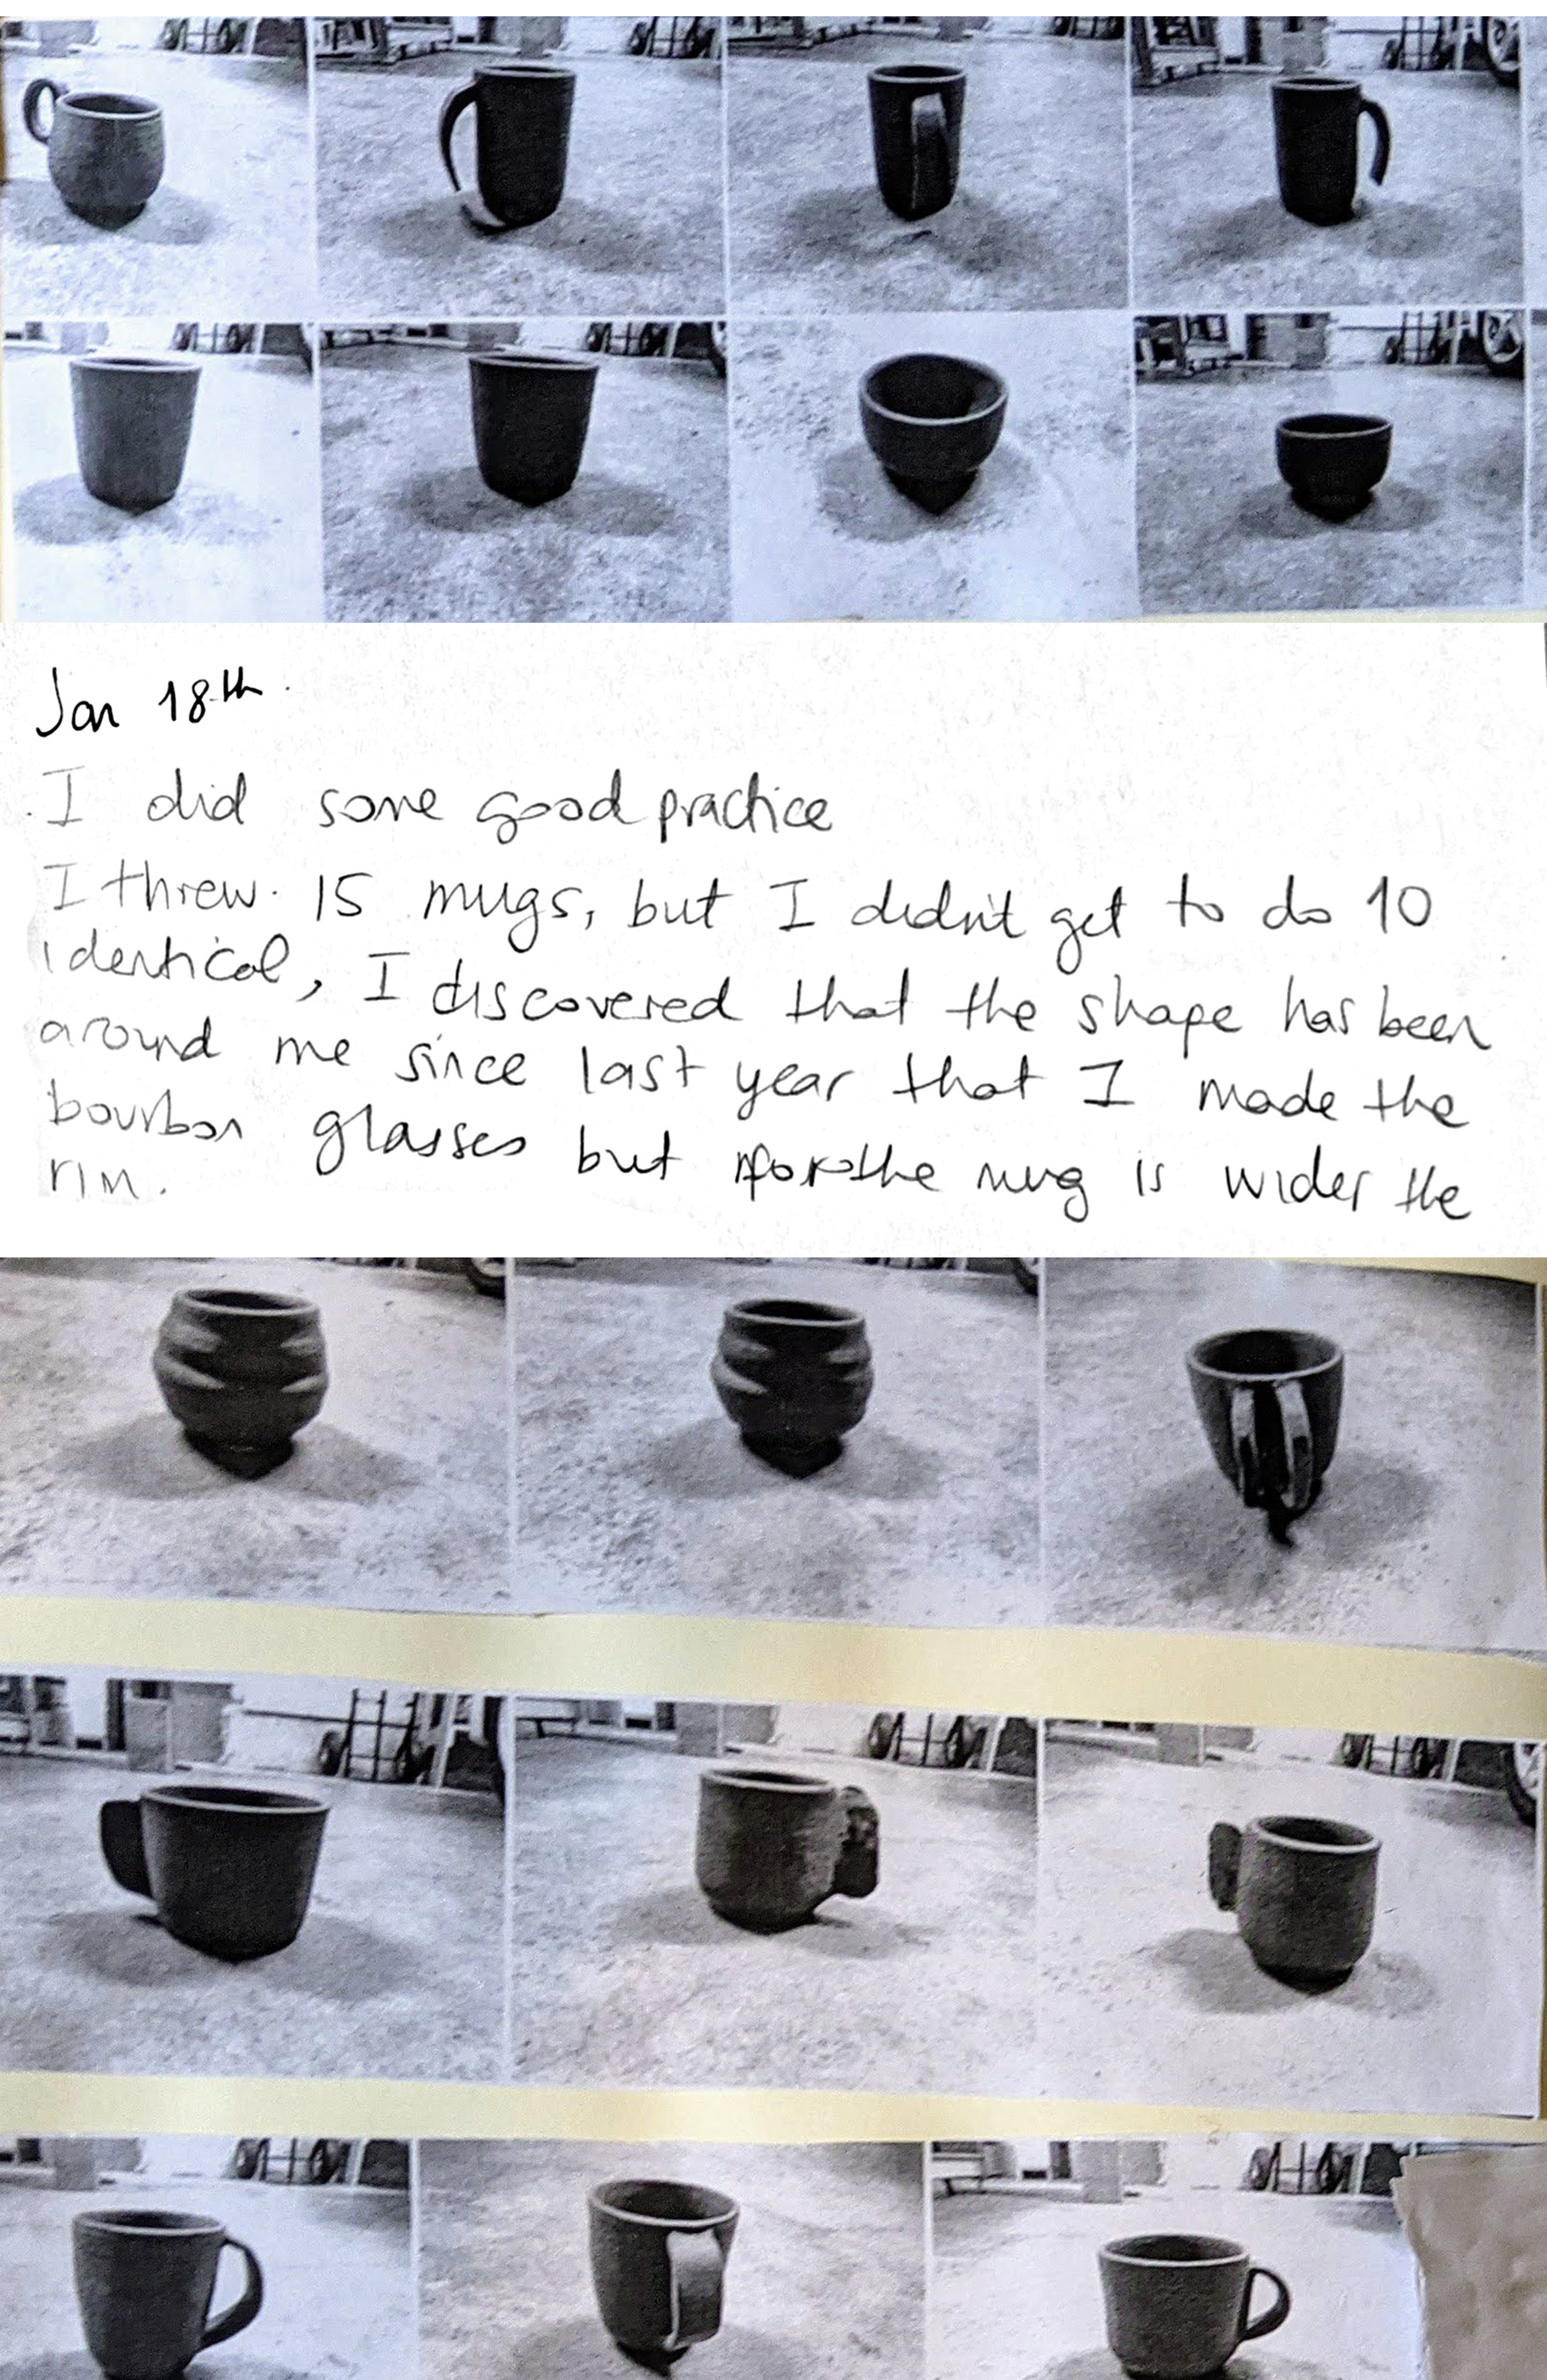 Jan 18th.
I did some good practice
I threw. 15 mugs, but I didn't get to do 10
identical, I discovered that the shape has been
around me since last year that I made the
bourbon glasses but for the mug is wider the
rim.